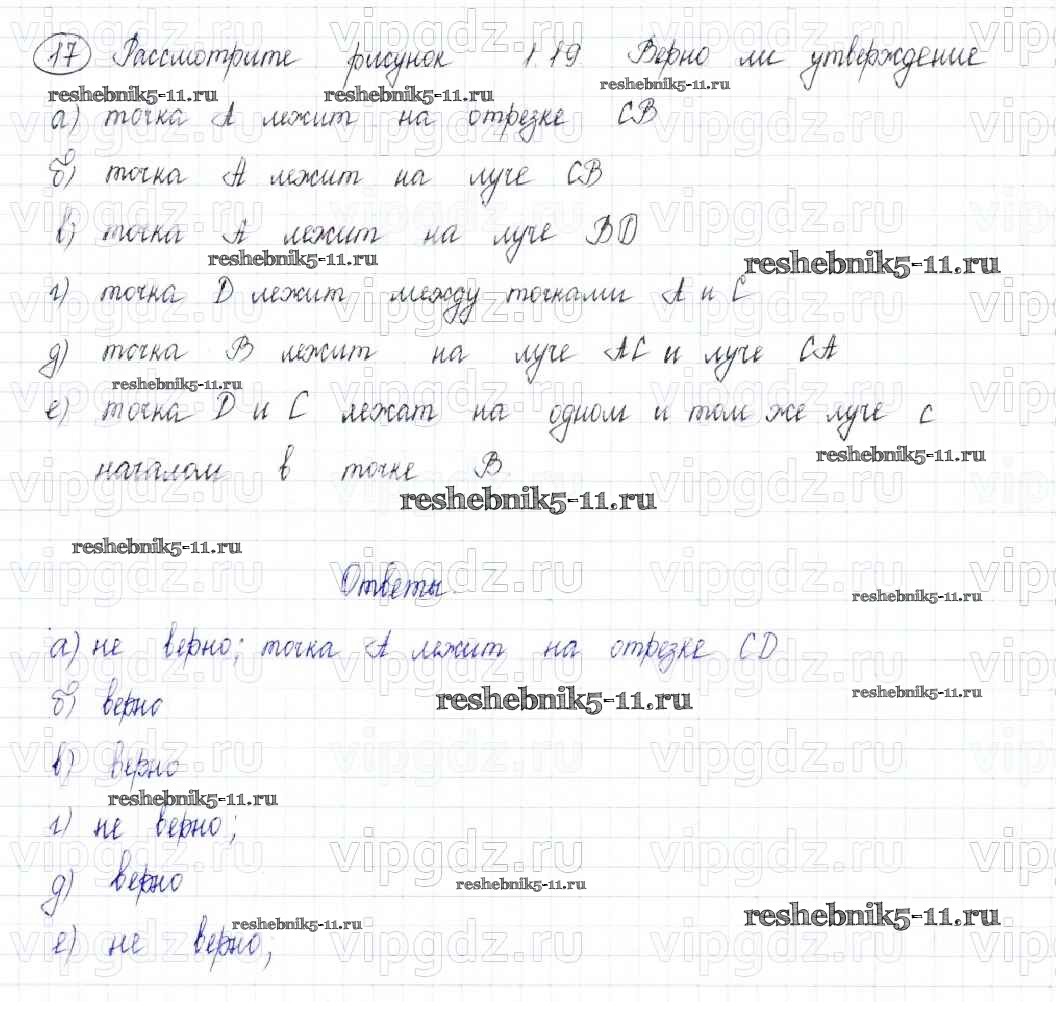 17 Рассмотрите рисунок 1.19 Верно ли утверждение
reshebnik5-11.ru reshebnik5-11.ru reshebnik5-11.ru
а) точка А лежит на отрезке СВ
б) точка А лежит на луче СВ
в) точка А лежит на луче BD
reshebnik5-11.ru reshebnik5-11.ru
г) точка D лежит между точками А и С
д) точка В лежит на луче АС и луче СА
reshebnik5-11.ru
е) точка D и С лежат на одном и том же луче с
reshebnik5-11.ru
началом в точке В
reshebnik5-11.ru
reshebnik5-11.ru
Ответы
reshebnik5-11.ru
а) не верно; точка А лежит на отрезке CD
б) верно
reshebnik5-11.ru reshebnik5-11.ru
в) верно
reshebnik5-11.ru
г) не верно;
д) верно
reshebnik5-11.ru
reshebnik5-11.ru reshebnik5-11.ru
е) не верно;
vipgdz.ru